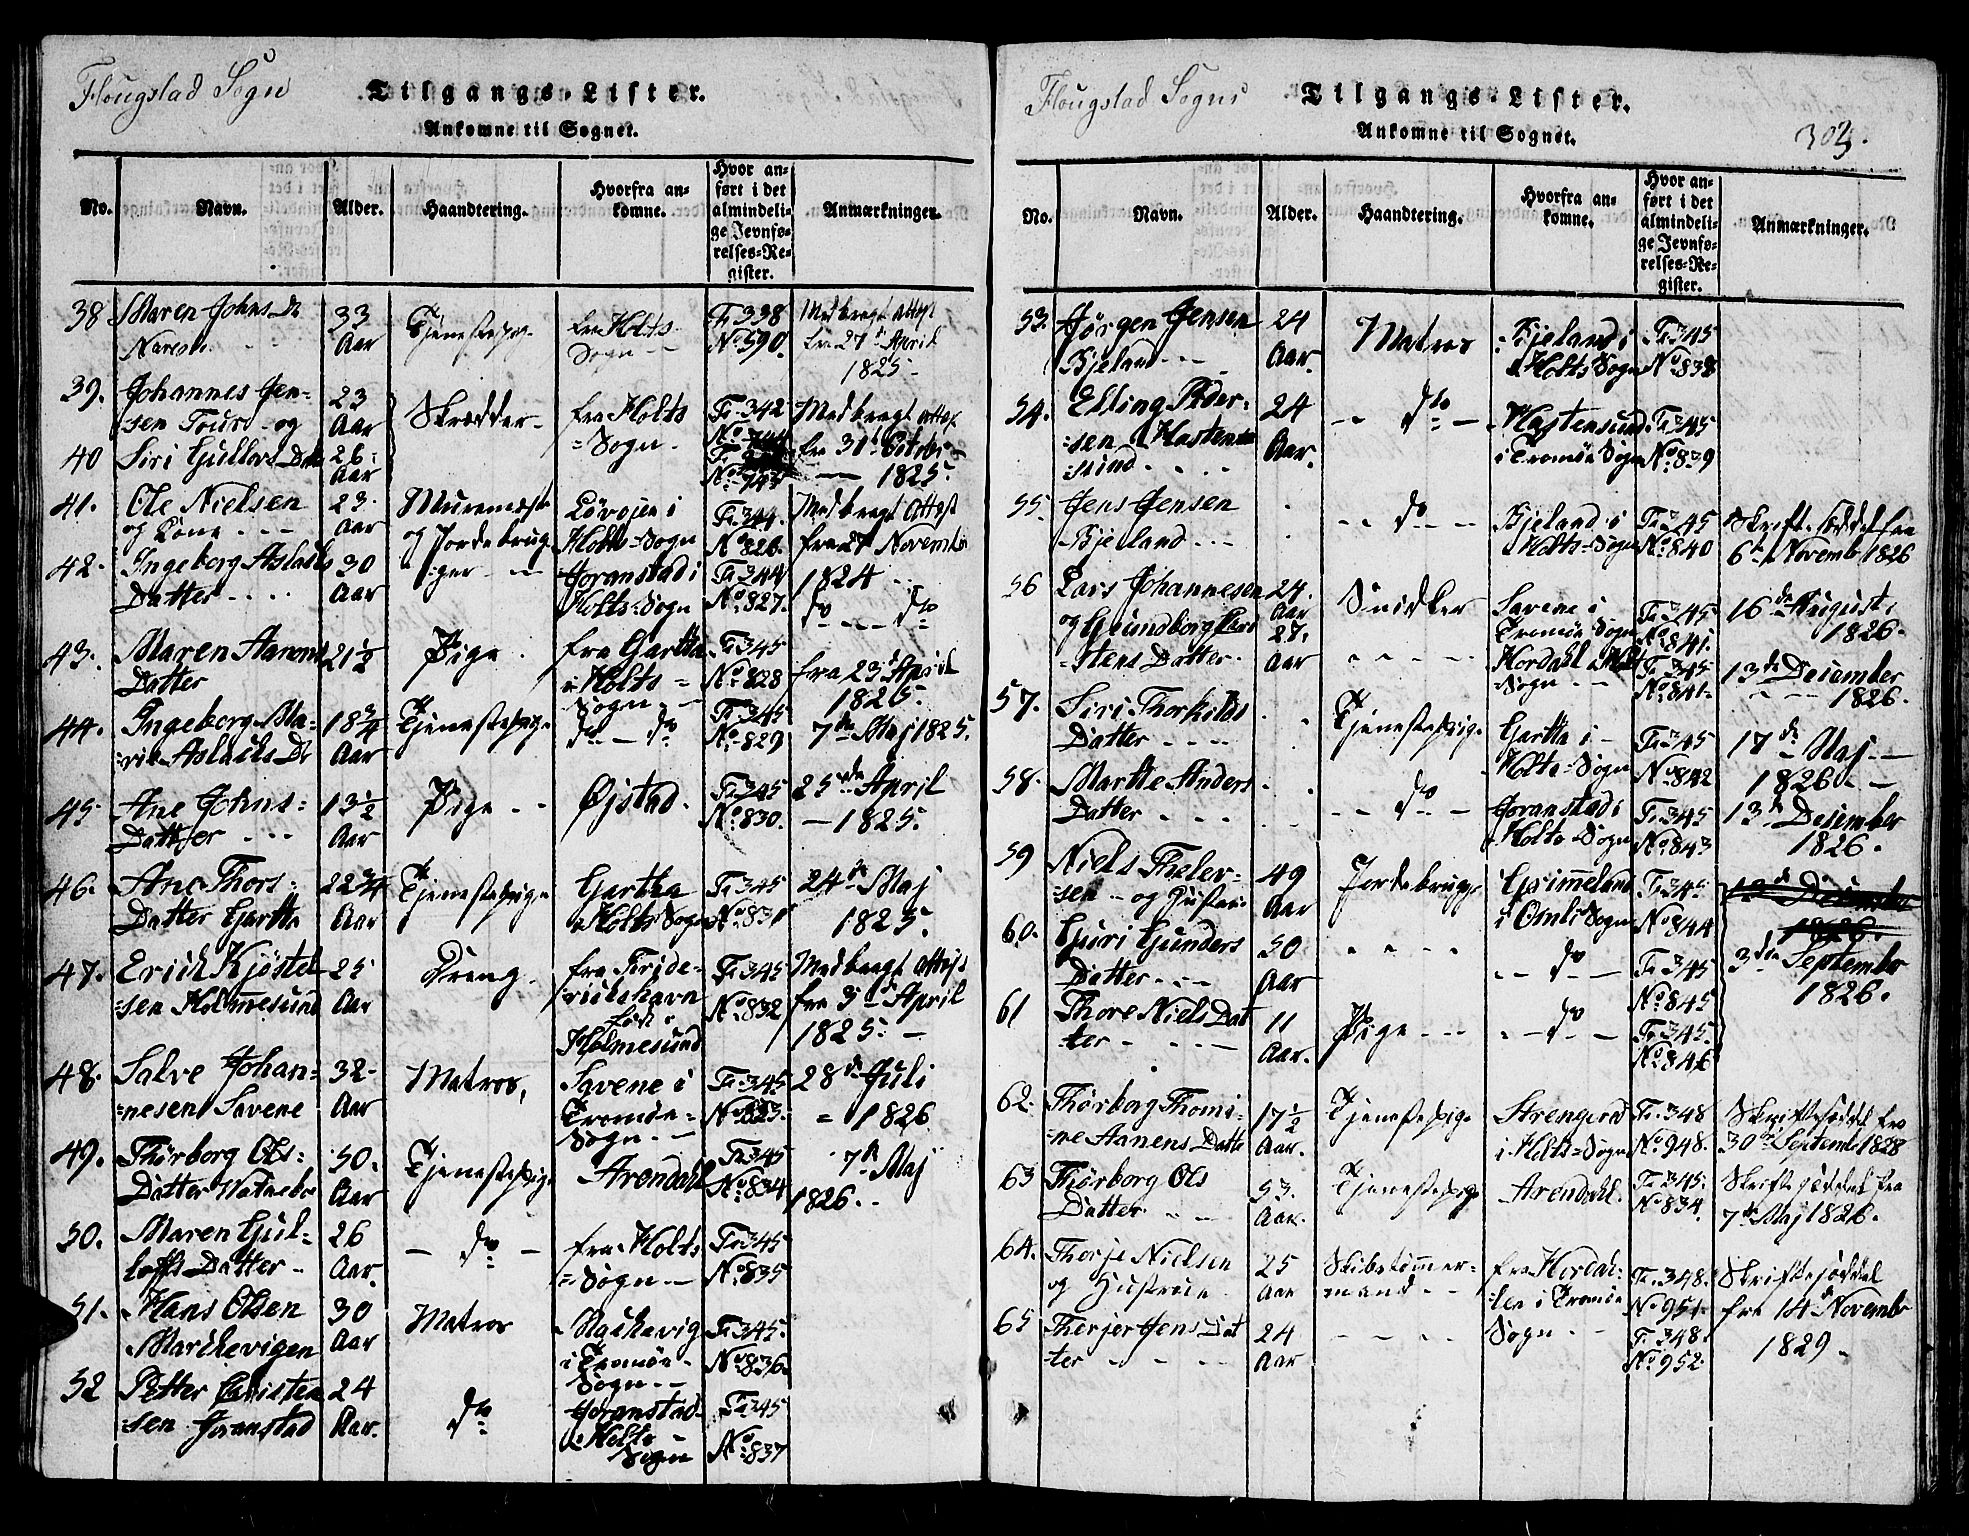 Flougstad Sogn
Tilgangs-Lister.
Ankomne til Sognet.
No. Navn. Alder. Haandtering. Hvorfra ankomne. Hvor anført i det almindelige Jevnførelses-Register. Anmærkninger.
38 Maren Johns Dr 33 Aar Tjenestepig. fra Holts Sogn Fr 338 No 590. Medbragt Attest fra 27d April 1825
39. Johannes Jensen og 23 Aar Skrædder fra Holts Sogn. Fr 342 Medbragt Attest fra 31 Octobr 1825.
40 Siri Gullovs Datt 26 Aar
41. Ole Nielsen og Kone 23. Aar Muremester og Jordebruger Løvøjen i Holts Sogn Fr 344. No 826. Medbragt Attest fra 27 Novembr 1824
42. Ingeborg Aslachs Datter 30 Aar Goranstad i Holts Sogn Fr 344 No 827. do do
43. Maren Aanons Datter 21½ Pige fra Gartha i Holts Sogn Fr 345 No 828 fra 23d April 1826.
44. Ingeborg Marie Aslachs Dr 18¾ Aar Tjenestepige do do Fr 345 No 829 7de Maj 1825.
45 Ane Johns Datter 13½ Aar Pige Øjstad. Fr 345 No 830. 25de April 1825.
46. Ane Thors Datter Gartha 22¾ Aar Tjenestepige Gartha Holts Sogn Fr 345 No 831 24de Maj 1825.
47. Erich Kjøstelsen Holmesund 25 Aar Dreng fra Friderichshavn født i Holmesund Fr 345 No 832 Medbragt Attest fra 3d April 1825.
48. Salve Johannesen Savene 32 Aar Matros, Savene i Tromøe Sogn Fr 345 No 833. 28de Juli 1826
49. Thorborg Ols Datter 50. Aar Tjenestepige Arendahl Fr 345 No 834 7de Maj 1826.
50. Maren Gulloffs Datter 26 Aar. do fra Holts Sogn Fr 345 No 835
51. Hans Olsen Marchevigen 30 Aar Matros i Tromøe Sogn Fr 345. No 836.
52 Petter Christensen Goranstad 24 Aar. do Goranstad Holts Sogn Fr 345 No 837
Flougstad Sogns
Tilgangs-Lister.
Ankomne til Sognet.
303.
No. Navn. Alder. Haandtering. Hvorfra ankomne. Hvor anført i det almindelige Jevnførelses-Register. Anmærkninger.
53. Jørgen Jensen Bjeland 24 Aar. Matros Bjeland i Holts Sogn Fr 345 No 838
54. Elling Pedersen Hastensund 24 Aar. do Hastensund i Tromøe Sogn Fr 345 No 839
55. Jens Jensen Bjeland do Bjeland i Holts Sogn Fr 345 No 840 Skriftesøddel fra 6te Novemb 1826
56 Lars Johannesen 24. Aar Snidker Savene i Tromøe Sogn Fr 345 No 841. 16de August 1826.
og Gundborg Christens Datter. 27. Aar Hordahl i Holt Sogn Fr 345 No 841. 13de December 1826.
57. Siri Thorkilds Datter Tjenestepige Gartha i Holts Sogn Fr 345 No 842 17de Maj 1826.
58. Marthe Anders Datter do Goranstad i Holts Sogn Fr 345 No 843 13de December 1826.
59 Niels Thelersen og 49 Aar Jordebruger Grimeland i Omli Sogn Fr 345 No 844 13de December 1826.
60. Guri Gunders Datter 50 Aar do Fr 345 No 845 3die Septembr 1826.
61 Thore Niels Datter 11 Aar. Pige do Fr 345. No 846
62. Thorborg Thomine Aanens Datter 17½ Aar. Tjenestepige Strengered i Holts Sogn Fr 348 No 948. Skriftesøddel fra 30te Septemb 1828
63 Thorborg Ols Datter 53. Aar. Tjenestepige Arendahl. Fr 345. No 834. Skriftesøddel fra 7de Maj 1826.
64. Therje Nielsen og Hustrue 25 Aar Skibstømmermand fra Hordalen i Tromøe Sogn Fr 348. No 951. Skriftesøddel fra 14de Novembr 1829
65 Therjer Jens Datter 24 Aar Fr 348. No 952.